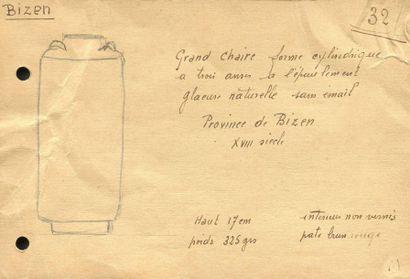 Bizen
32
Grand chaire forme cylindrique
a trois anses a l'épaulement
glaçure naturelle sans émail
Province de Bizen
XVIII siècle
Haut 17 cm
poids 325 grs
interieur non vernis
pate brun rouge